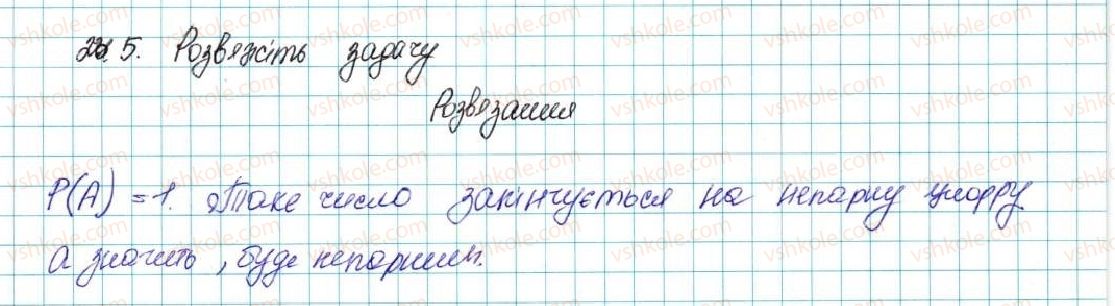 22.5. Розвяжіть задачу
Розвязання
P(A) = 1. Таке число закінчується на непарну цифру
а значить, буде непарним.